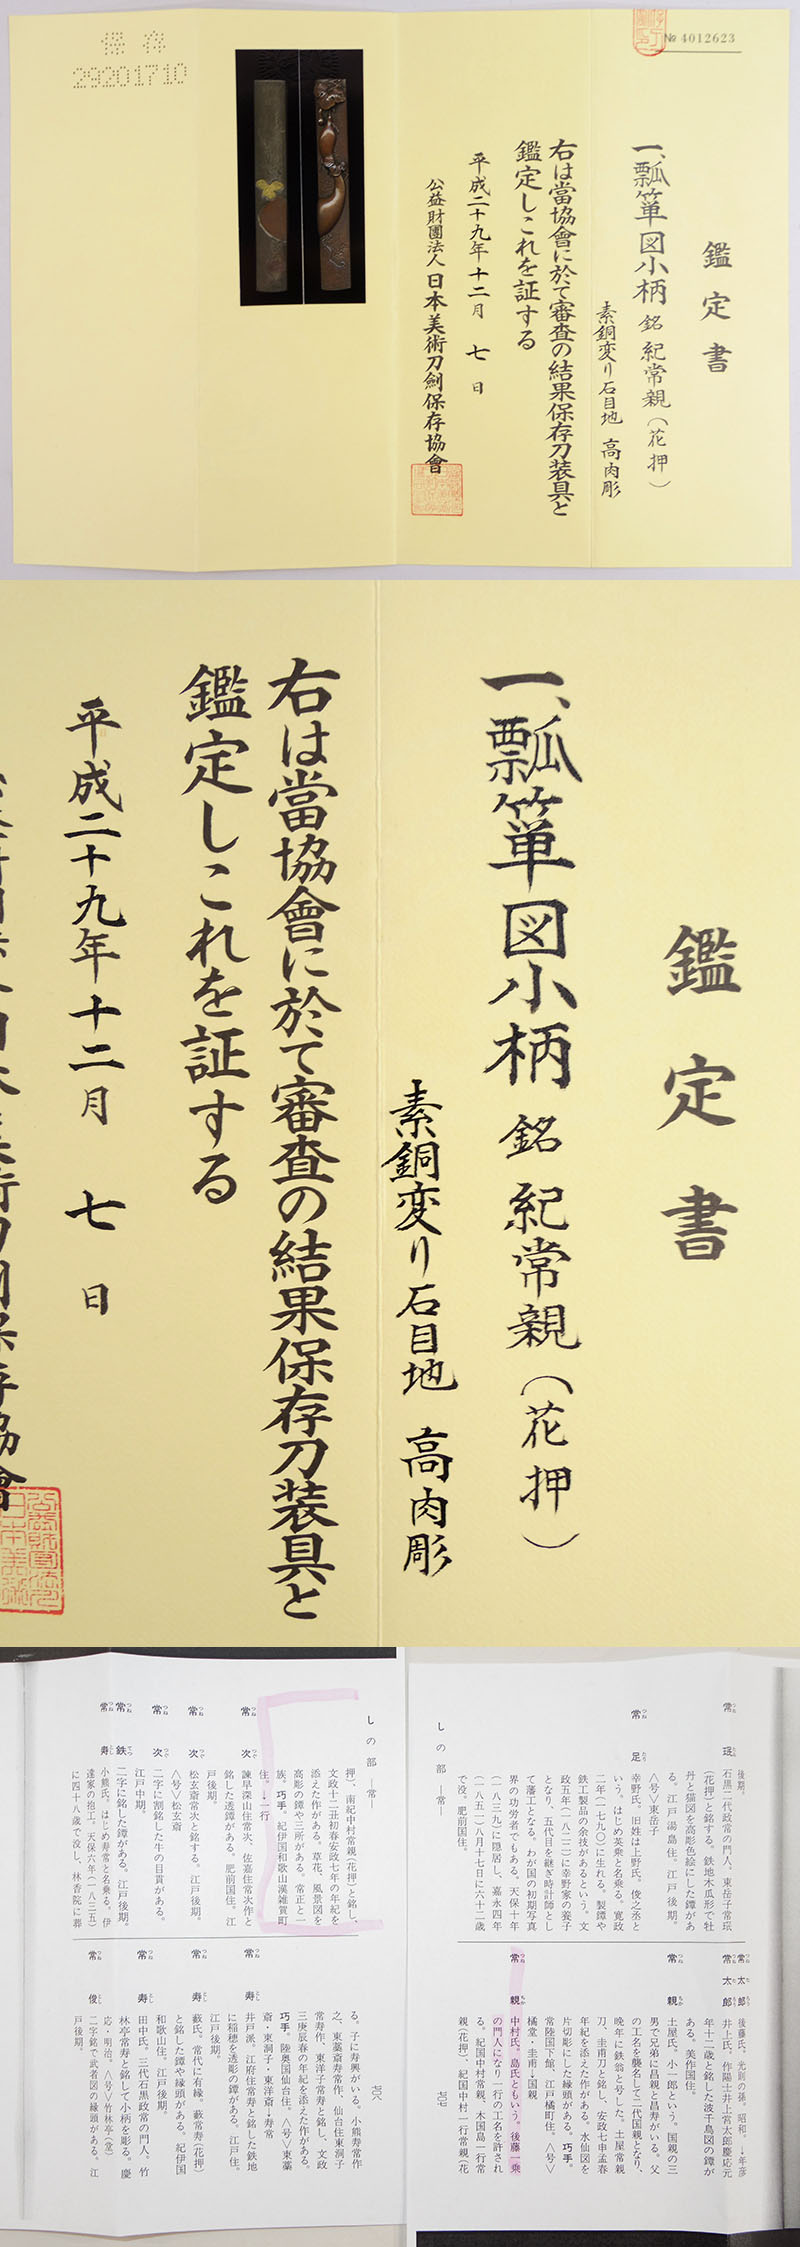 № 4012623
鑑定書
一、瓢箪図小柄 銘 紀常親(花押)
素銅変り石目地 高肉彫
右は當協會に於て審査の結果保存刀装具と
鑑定しこれを証する
平成二十九年十二月 七 日
公益財團法人 日本美術刀劍保存協會
保存
29201710
鑑定書
一、瓢箪図小柄 銘 紀常親(花押)
素銅変り石目地 高肉彫
右は當協會に於て審査の結果保存刀装具と
鑑定しこれを証する
平成二十九年十二月 七 日
後期。
常珉 石黒二代政常の門人。東岳子常珉
(花押)と銘する。鉄地木瓜形で牡
丹と猫図を高彫色絵にした鐔があ
る。江戸湯島住。江戸後期。
〈号〉東岳子
常足 幸野氏。旧姓は上野氏。俊之丞と
いう。はじめ英乗と名乗る。寛政
二年(一七九〇)に生れる。製鐔や
鉄工製品の余技があるという。文
政五年(一八二二)に幸野家の養子
となり、五代目を継ぎ時計師とし
て藩工となる。わが国の初期写真
界の功労者でもある。天保十年
(一八三九)に隠居し、嘉永四年
(一八五一)八月十七日に六十二歳
で没。肥前国住。
常太郎 後藤氏。光則の孫。昭和。→年彦
常太郎 井上氏。作陽士井上常太郎慶応元
年十二歳と銘した波千鳥図の鐔が
ある。美作国住。
常親 土屋氏。小一郎という。国親の三
男で兄弟に昌親と昌寿がいる。父
の工名を襲名して二代国親となり、
晩年に鉄翁と号した。土屋常親
刀、圭甫刀と銘し、安政七申孟春
年紀を添えた作がある。水仙図を
片切彫にした縁頭がある。巧手。
常陸国下館、江戸橘町住。〈号〉
橘堂・圭甫→国親
常親 中村氏。島氏ともいう。後藤一乗
の門人になり一行の工名を許され
る。紀国中村常親、木国島一行常
親(花押)、紀国中村一行常親(花
しの部 ―常―
しの部 ―常―
押)、南紀中村常親(花押)と銘し、
文政十二丑初春安政七年の年紀を
添えた作がある。草花、風景図を
高彫の鐔や三所がある。常正と一
族。巧手。紀伊国和歌山漢雑賀町
住。→一行
常次 諫早深山住常次、佐嘉住常次作と
銘した透鐔がある。肥前国住。江
戸後期。
常次 松玄斎常次と銘する。江戸後期。
〈号〉松玄斎
常次 二字に割銘した牛の目貫がある。
江戸中期。
常鉄 二字に銘した鐔がある。江戸後期。
常寿 小熊氏。はじめ寿常と名乗る。伊
達家の抱工。天保六年(一八三五)
に四十八歳で没し、林香院に葬
る。子に寿興がいる。小熊寿常作
之、東藁斎寿常作、仙台住東洞子
常寿作、東洋子常寿と銘し、文政
三庚辰春の年紀を添えた作がある。
巧手。陸奥国仙台住。〈号〉東藁
斎・東洞子・東洋斎→寿常
常寿 井戸派。江府住常寿と銘した鉄地
に稲穂を透彫の鐔がある。江戸住。
江戸後期。
常寿 藪氏。常代に有縁。藪常寿(花押)
と銘した鐔や縁頭がある。紀伊国
和歌山住。江戸後期。
常寿 田中氏。三代石黒政常の門人。竹
林亭常寿と銘して小柄を彫る。慶
応・明治。〈号〉竹林亭(堂)
常俊 二字銘で武者図の縁頭がある。江
戸後期。